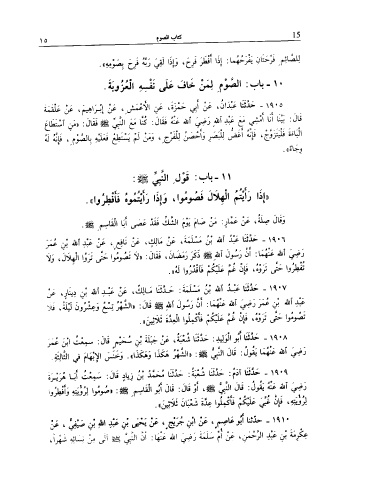 15 كتاب الصوم ١٥
لِلصَّائِمِ فَرْحَتَانِ يَفْرَحُهُمَا: إِذَا أَفْطَرَ فَرِحَ، وَإِذَا لَقِيَ رَبَّهُ فَرِحَ بِصَوْمِهِ».
١٠ - باب: الصَّوْمِ لِمَنْ خَافَ عَلَى نَفْسِهِ الْعُزُوبَةَ.
١٩٠٥ - حَدَّثَنَا عَبْدَانُ، عَنْ أَبِي حَمْزَةَ، عَنِ الْأَعْمَشِ، عَنْ إِبْرَاهِيمَ، عَنْ عَلْقَمَةَ
قَالَ: بَيْنَا أَنَا أَمْشِي مَعَ عَبْدِ اللهِ رَضِيَ اللهُ عَنْهُ فَقَالَ: كُنَّا مَعَ النَّبِيِّ ﷺ فَقَالَ: «مَنِ اسْتَطَاعَ
الْبَاءَةَ فَلْيَتَزَوَّجْ، فَإِنَّهُ أَغَضُّ لِلْبَصَرِ وَأَحْصَنُ لِلْفَرْجِ، وَمَنْ لَمْ يَسْتَطِعْ فَعَلَيْهِ بِالصَّوْمِ، فَإِنَّهُ لَهُ
وِجَاءٌ».
١١ - باب: قَوْلِ النَّبِيِّ ﷺ:
«إِذَا رَأَيْتُمُ الْهِلَالَ فَصُومُوا، وَإِذَا رَأَيْتُمُوهُ فَأَفْطِرُوا».
وَقَالَ صِلَةُ، عَنْ عَمَّارٍ: مَنْ صَامَ يَوْمَ الشَّكِّ فَقَدْ عَصَى أَبَا الْقَاسِمِ ﷺ.
١٩٠٦ - حَدَّثَنَا عَبْدُ اللهِ بْنُ مَسْلَمَةَ، عَنْ مَالِكٍ، عَنْ نَافِعٍ، عَنْ عَبْدِ اللهِ بْنِ عُمَرَ
رَضِيَ اللهُ عَنْهُمَا: أَنَّ رَسُولَ اللهِ ﷺ ذَكَرَ رَمَضَانَ، فَقَالَ: «لَا تَصُومُوا حَتَّى تَرَوُا الْهِلَالَ، وَلَا
تُفْطِرُوا حَتَّى تَرَوْهُ، فَإِنْ غُمَّ عَلَيْكُمْ فَاقْدُرُوا لَهُ».
١٩٠٧ - حَدَّثَنَا عَبْدُ اللهِ بْنُ مَسْلَمَةَ: حَدَّثَنَا مَالِكٌ، عَنْ عَبْدِ اللهِ بْنِ دِينَارٍ، عَنْ
عَبْدِ اللهِ بْنِ عُمَرَ رَضِيَ اللهُ عَنْهُمَا: أَنَّ رَسُولَ اللهِ ﷺ قَالَ: «الشَّهْرُ تِسْعٌ وَعِشْرُونَ لَيْلَةً، فَلَا
تَصُومُوا حَتَّى تَرَوْهُ، فَإِنْ غُمَّ عَلَيْكُمْ فَأَكْمِلُوا الْعِدَّةَ ثَلَاثِينَ».
١٩٠٨ - حَدَّثَنَا أَبُو الْوَلِيدِ: حَدَّثَنَا شُعْبَةُ، عَنْ جَبَلَةَ بْنِ سُحَيْمٍ قَالَ: سَمِعْتُ ابْنَ عُمَرَ
رَضِيَ اللهُ عَنْهُمَا يَقُولُ: قَالَ النَّبِيُّ ﷺ: «الشَّهْرُ هَكَذَا وَهَكَذَا». وَخَنَسَ الْإِبْهَامَ فِي الثَّالِثَةِ.
١٩٠٩ - حَدَّثَنَا آدَمُ: حَدَّثَنَا شُعْبَةُ: حَدَّثَنَا مُحَمَّدُ بْنُ زِيَادٍ قَالَ: سَمِعْتُ أَبَا هُرَيْرَةَ
رَضِيَ اللهُ عَنْهُ يَقُولُ: قَالَ النَّبِيُّ ﷺ، أَوْ قَالَ: قَالَ أَبُو الْقَاسِمِ ﷺ: «صُومُوا لِرُؤْيَتِهِ وَأَفْطِرُوا
لِرُؤْيَتِهِ، فَإِنْ غُبِّيَ عَلَيْكُمْ فَأَكْمِلُوا عِدَّةَ شَعْبَانَ ثَلَاثِينَ».
١٩١٠ - حَدَّثَنَا أَبُو عَاصِمٍ، عَنِ ابْنِ جُرَيْجٍ، عَنْ يَحْيَى بْنِ عَبْدِ اللهِ بْنِ صَيْفِيٍّ، عَنْ
عِكْرِمَةَ بْنِ عَبْدِ الرَّحْمَنِ، عَنْ أُمِّ سَلَمَةَ رَضِيَ اللهُ عَنْهَا: أَنَّ النَّبِيَّ ﷺ آلَى مِنْ نِسَائِهِ شَهْرًا،